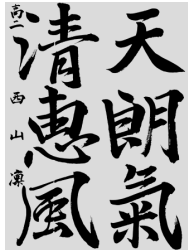 天朗氣
清惠風
高二 西山凜